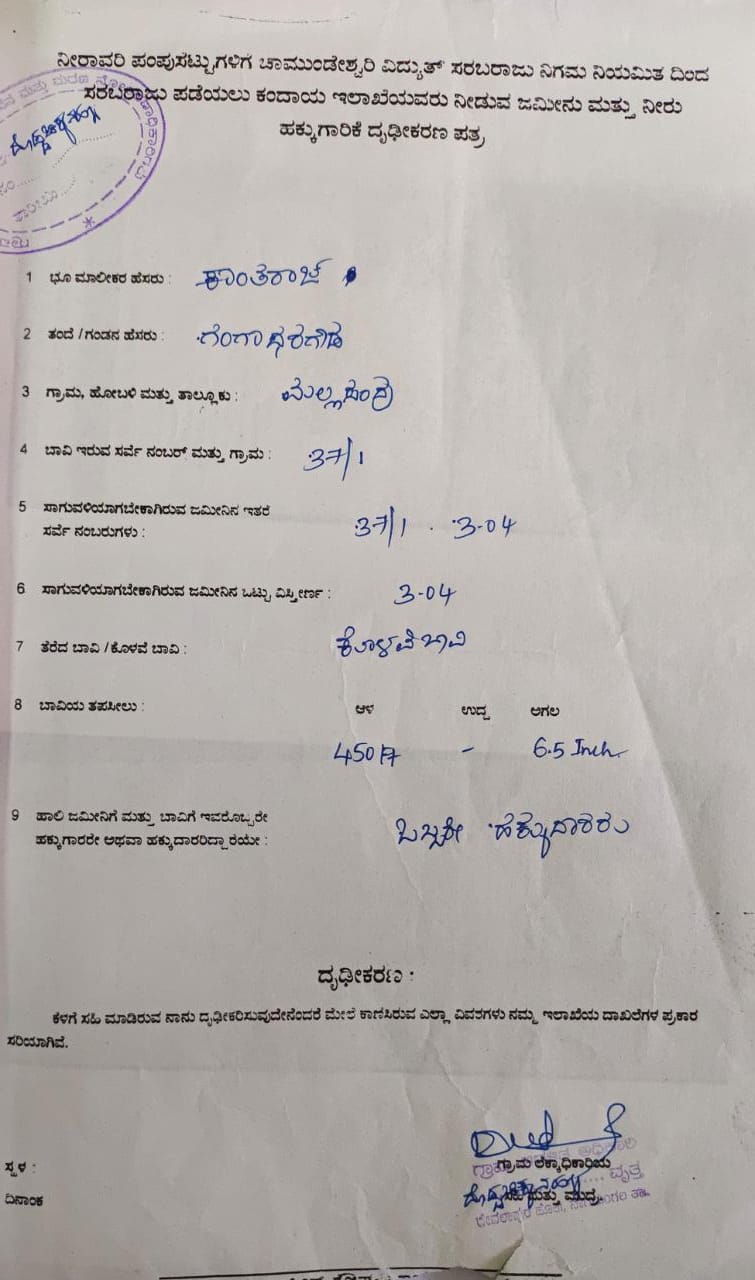 ನೀರಾವರಿ ಪಂಪುಸೆಟ್ಟುಗಳಿಗೆ ಚಾಮುಂಡೇಶ್ವರಿ ವಿದ್ಯುತ್ ಸರಬರಾಜು ನಿಗಮ ನಿಯಮಿತ ದಿಂದ
ಸರಬರಾಜು ಪಡೆಯಲು ಕಂದಾಯ ಇಲಾಖೆಯವರು ನೀಡುವ ಜಮೀನು ಮತ್ತು ನೀರು
ಹಕ್ಕುಗಾರಿಕೆ ದೃಢೀಕರಣ ಪತ್ರ
1 ಭೂ ಮಾಲೀಕರ ಹೆಸರು : ಕಾಂತರಾಜ್
2 ತಂದೆ /ಗಂಡನ ಹೆಸರು : ಗಂಗಾಧರಗೌಡ
3 ಗ್ರಾಮ, ಹೋಬಳಿ ಮತ್ತು ತಾಲ್ಲೂಕು : ಮಲ್ಲಸಂದ್ರ
4 ಬಾವಿ ಇರುವ ಸರ್ವೆ ನಂಬರ್ ಮತ್ತು ಗ್ರಾಮ : 37/1
5 ಸಾಗುವಳಿಯಾಗಬೇಕಾಗಿರುವ ಜಮೀನಿನ ಇತರೆ
ಸರ್ವೆ ನಂಬರುಗಳು : 37/1 . 3-04
6 ಸಾಗುವಳಿಯಾಗಬೇಕಾಗಿರುವ ಜಮೀನಿನ ಒಟ್ಟು ವಿಸ್ತೀರ್ಣ : 3-04
7 ತೆರೆದ ಬಾವಿ /ಕೊಳವೆ ಬಾವಿ : ಕೊಳವೆ ಬಾವಿ
8 ಬಾವಿಯ ತಪಸೀಲು : ಆಳ ಉದ್ದ ಅಗಲ
450 ft - 6.5 Inch
9 ಹಾಲಿ ಜಮೀನಿಗೆ ಮತ್ತು ಬಾವಿಗೆ ಇವರೊಬ್ಬರೇ
ಹಕ್ಕುಗಾರರೇ ಅಥವಾ ಹಕ್ಕುದಾರರಿದ್ದಾರೆಯೇ : ಒಬ್ಬರೇ ಹಕ್ಕುದಾರರು
ದೃಢೀಕರಣ :
ಕೆಳಗೆ ಸಹಿ ಮಾಡಿರುವ ನಾನು ದೃಢೀಕರಿಸುವುದೇನೆಂದರೆ ಮೇಲೆ ಕಾಣಿಸಿರುವ ಎಲ್ಲಾ ವಿವರಗಳು ನಮ್ಮ ಇಲಾಖೆಯ ದಾಖಲೆಗಳ ಪ್ರಕಾರ
ಸರಿಯಾಗಿವೆ.
ಸ್ಥಳ :
ಗ್ರಾಮ ಲೆಕ್ಕಾಧಿಕಾರಿಯ
ದಿನಾಂಕ
ಸಹಿ ಮತ್ತು ಮುದ್ರೆ